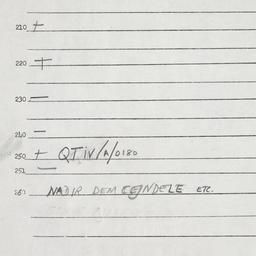 210 +
220 +
230 —
240 —
250 + QTIV/A/0180
251 —
260 NADIR DEM ETC.